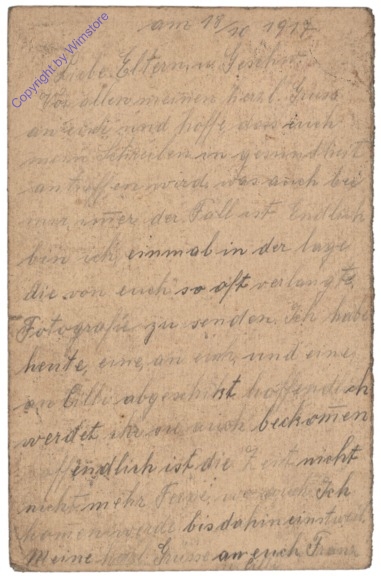 am 18/10 1917
Liebe Eltern u. Geschw.
Vor allem meinen herzl. Gruss
an euch und hoffe das euch
mein Schreiben in gesundheit
antreffen werd was auch bei
mir immer der Fall ist Endlich
bin ich einmal in der lage
die von euch so oft verlangte
Fotografie zu senden. Ich habe
heute, eine an euch und eine
an Cilli abgeschikt hoffendlich
werdet ihr sie auch beckomen
hoffendlich ist die Zeit nicht
nicht mehr Ich
komen werde bis dahin einstweil
Meine herzl Grüsse an euch Franz
Copyright by Wimstore